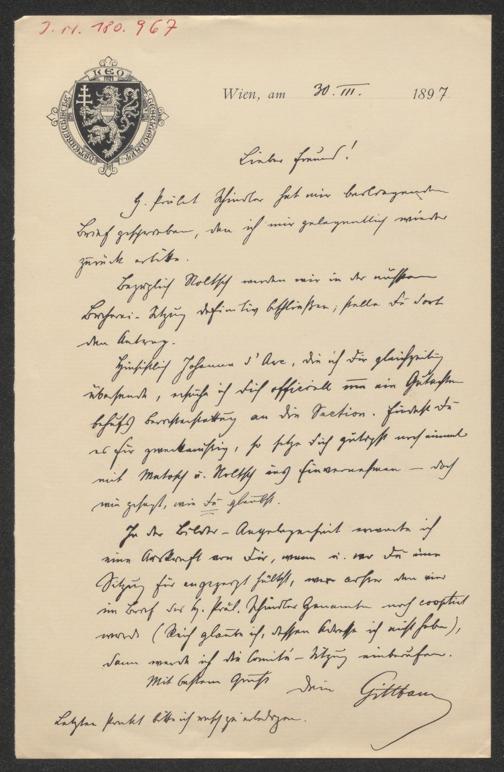 J. N. 180.967
LEO
Wien, am 30. III. 1897.
Lieber Freund!
H. Prälat Schindler hat mir beiliegenden
Brief geschrieben, den ich mir gelegentlich wieder
zurück erbitte.
Bezüglich Noltsch werden wir in der nächsten
Sitzung definitiv beschließen; stelle Du dort
den Antrag.
Hinsichtlich Johanna d'Arc, die ich Dir gleichzeitig
übersende, ersuche ich Dich officiell um ein Gutachten
behufs Berichterstattung an die Section. Findest Du
es für zweckmäßig, so setze Dich gütigst noch einmal
mit Matosch u. Noltsch ins Einvernehmen — doch
wie gesagt, wie Du glaubst.
In der Bilder-Angelegenheit erwarte ich
eine Auskunft von Dir, wann u. wo Du eine
Sitzung für angezeigt hältst, wer außer den
im Brief des H. Präl. Schindler Genannten noch cooptirt
werde ( glaube ich, dessen Adresse ich nicht habe),
dann werde ich die Comité-Sitzung einberufen.
Mit bestem Gruß
Dein Gittbaur
Letzten Punkt bitte ich rasch zu erledigen.